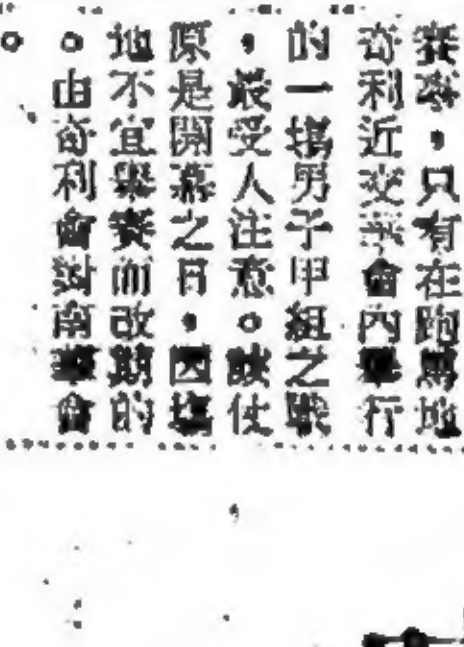 賽事，只有在跑馬地
奇利近交樂會內舉行
的一塲男子甲組之戰
，最受人注意。該仗
原是開幕之日，因塲
地不宜舉賽而改期的
。由奇利會對南華會
。